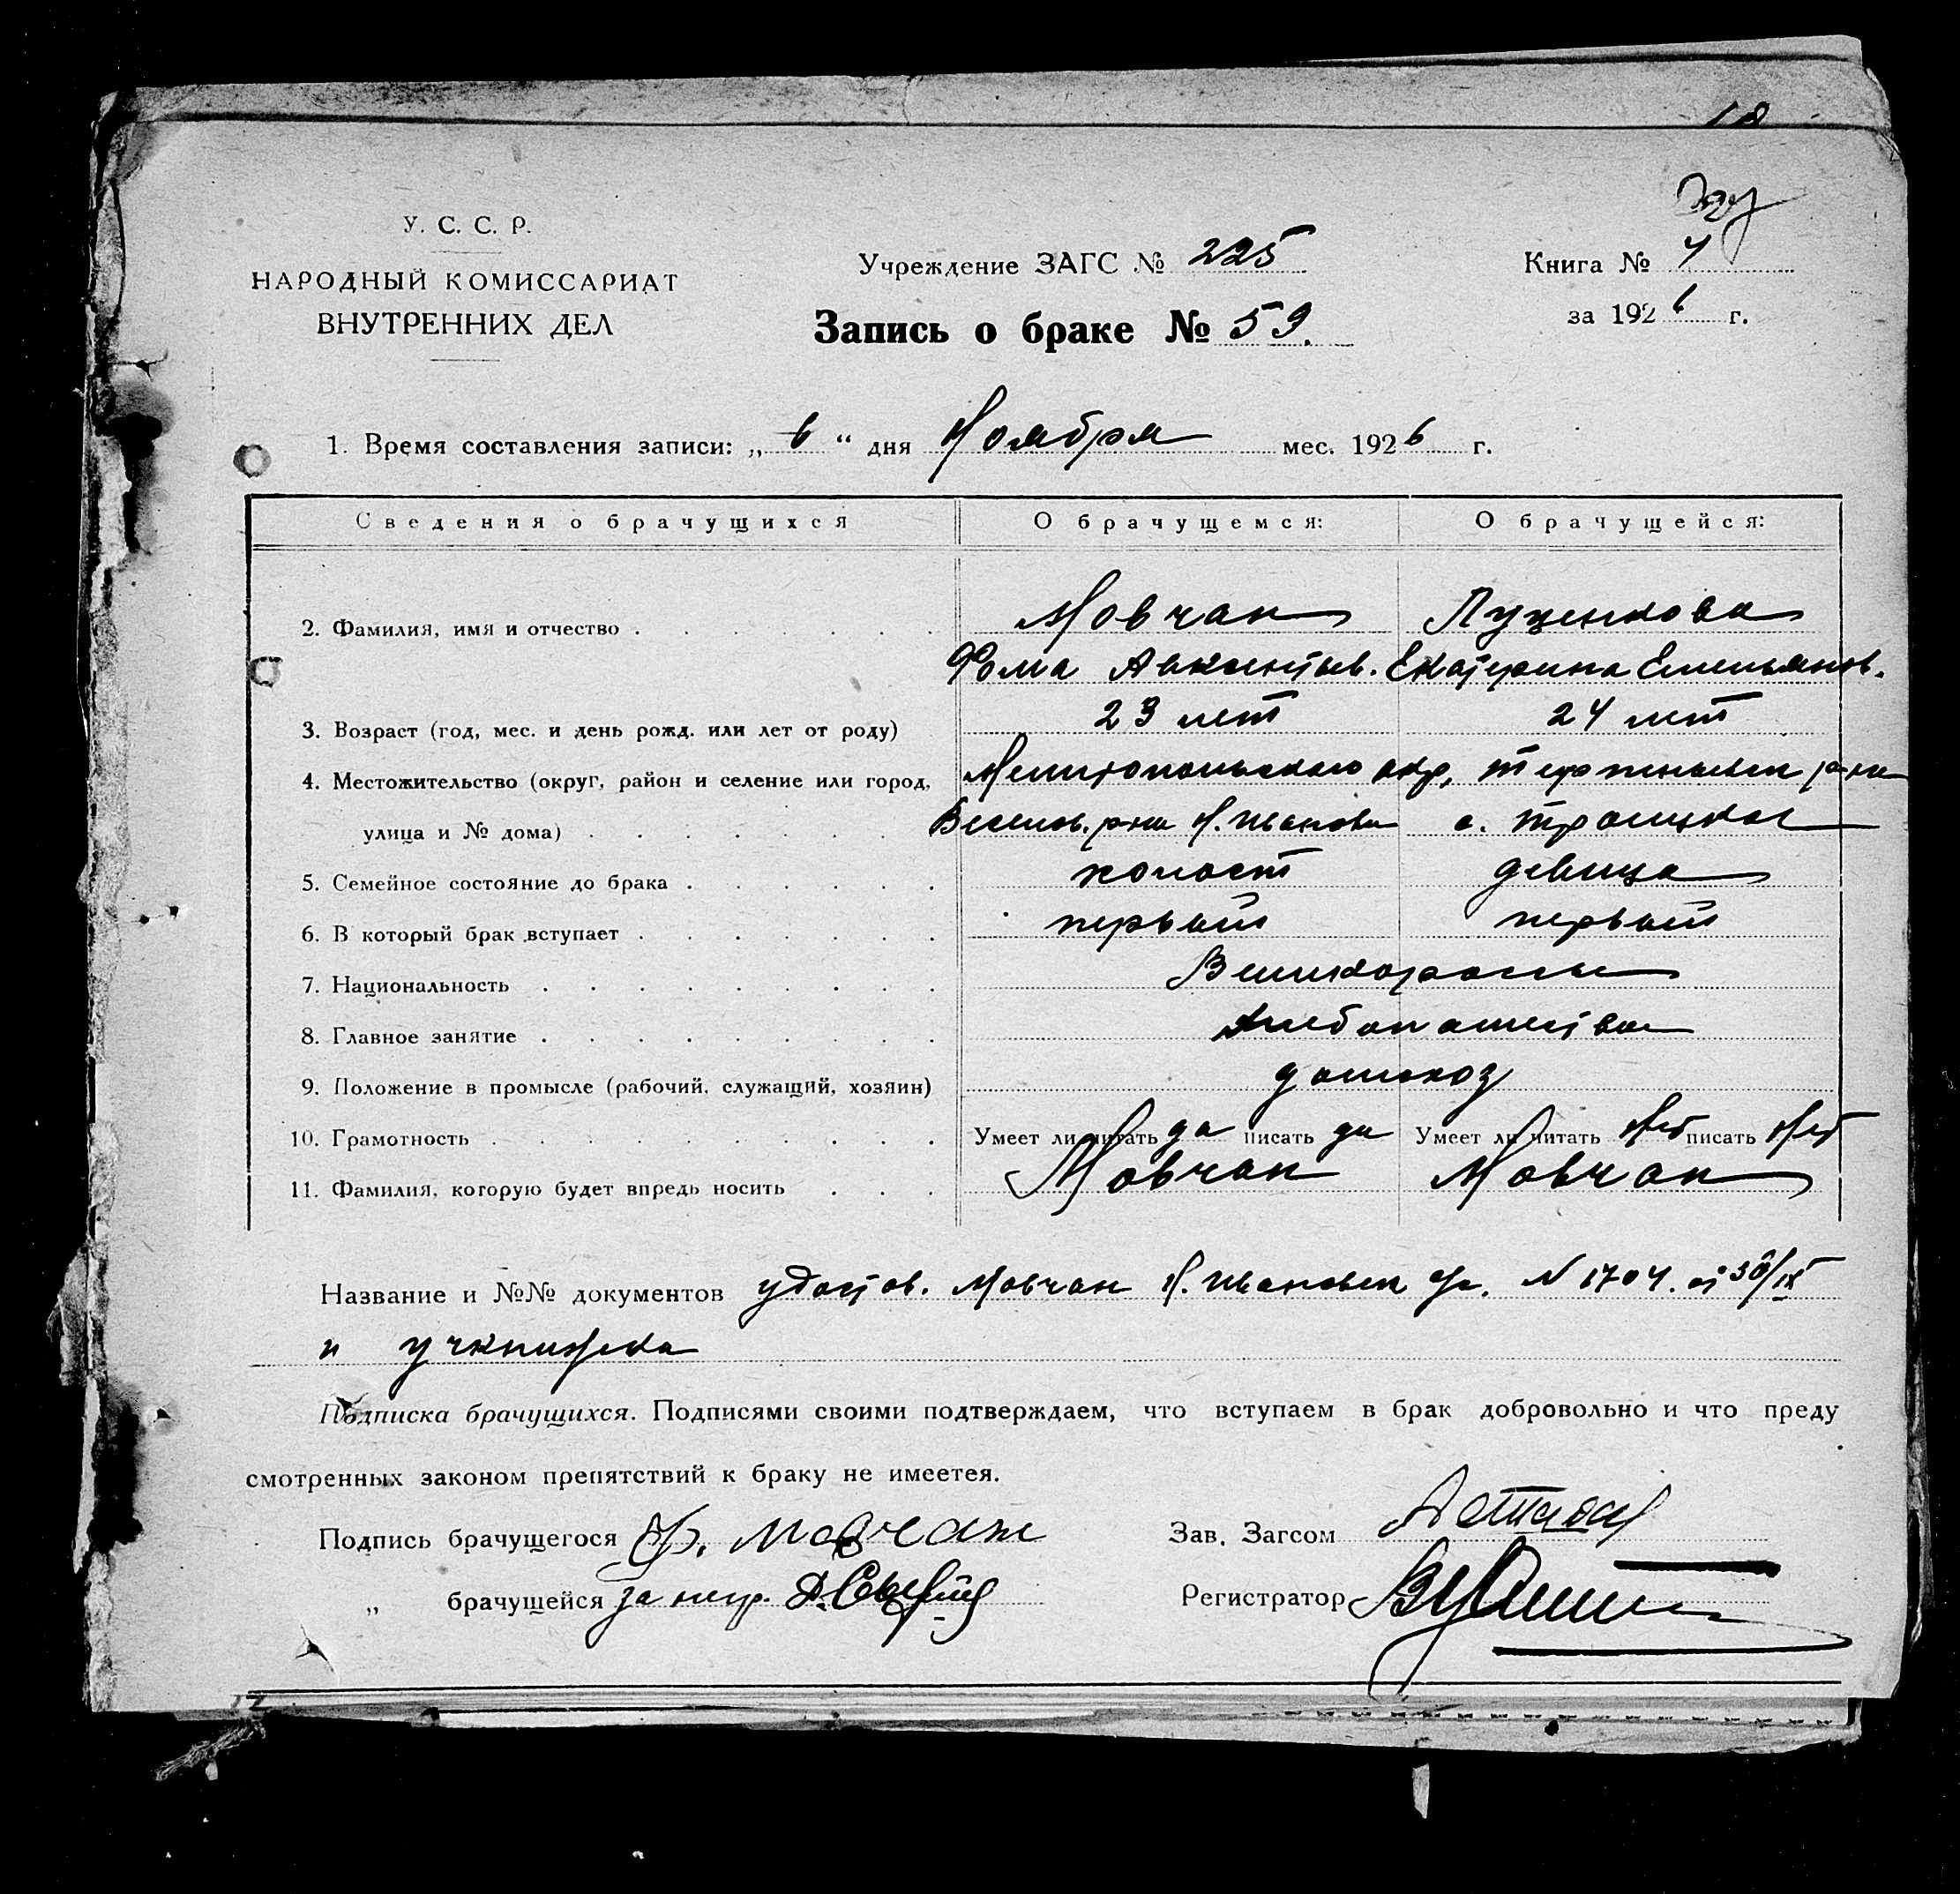 У. С. С. Р.
НАРОДНЫЙ КОМИССАРИАТ
ВНУТРЕННИХ ДЕЛ
Учреждение ЗАГС № 225
Запись о браке № 59.
Книга № 4
за 1926 г.
1. Время составления записи: „ 6 “ дня Ноября мес. 1926 г.
Сведения о брачущихся О брачущемся: О брачущейся:
2. Фамилия, имя и отчество Мовчан Луценкова
Фома Авксентьев. Екатерина Емельянов.
3. Возраст (год, мес. и день рожд. или лет от роду) 23 лет 24 лет
4. Местожительство (округ, район и селение или город, Мелитопольского окр,
улица и № дома) Веселов. р-на Н. Ивановка с. Троицкое
5. Семейное состояние до брака холост девица
6. В который брак вступает первый первый
7. Национальность Великороссы
8. Главное занятие Хлебопашество
9. Положение в промысле (рабочий, служащий, хозяин) домохоз
10. Грамотность Умеет ли читать да писать да Умеет ли читать Нет писать Нет
11. Фамилия, которую будет впредь носить Мовчан Мовчан
Название и №№ документов удостов. Мовчан Н. Ивановск N 1704. от 30/IX
и учкнижка
Подписка брачущихся. Подписями своими подтверждаем, что вступаем в брак добровольно и что преду
смотренных законом препятствий к браку не имеетея.
Подпись брачущегося Ф. Мовчан Зав. Загсом
„ брачущейся за негр. Регистратор